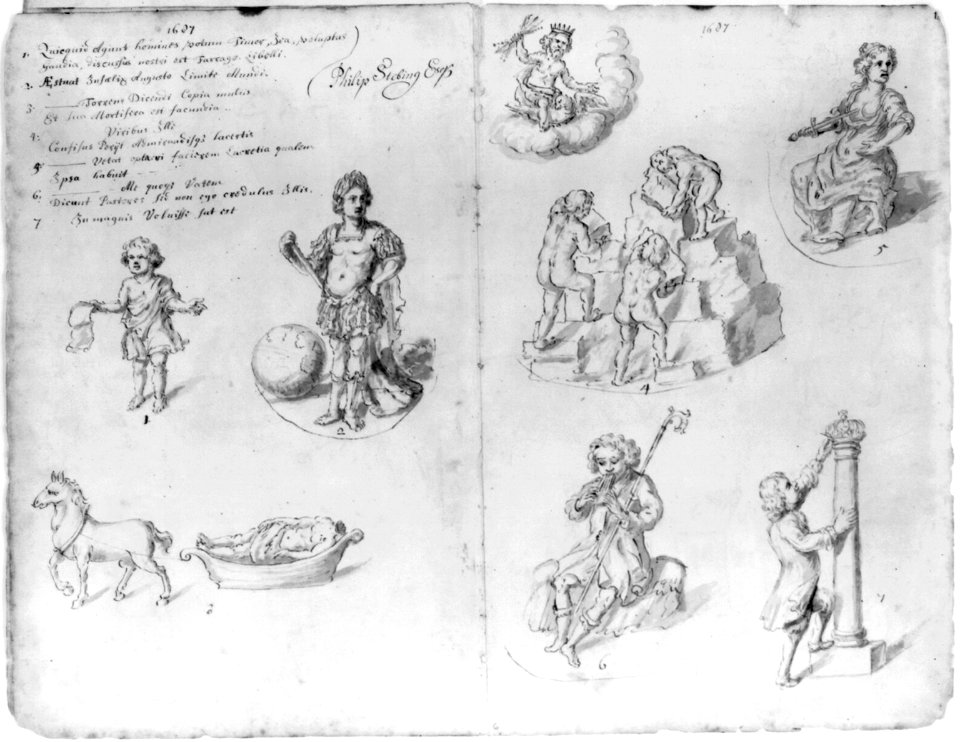 1687
1. Quicquid Agunt homines, votum Timor, Ira, voluptas
Gaudia, discursus nostri est Farrago Libelli.
2. Æstuat Infælix Angusto Limite Mundi.
3. Torrens Dicendi Copia multis
Et sua Mortifera est facundia
4. Viribus Ille
Confisus Perijt Admirandisqs lacertis
5 Vetat optari faciem Lucretia qualem
Ipsa habuit
6. Me quoqs Vatem
Dicunt Pastores sed non ego credulus Illis.
7 In magnis Voluisse sat est
Philip Stebing Esqr
1687
1
2
3
4
5
6
7